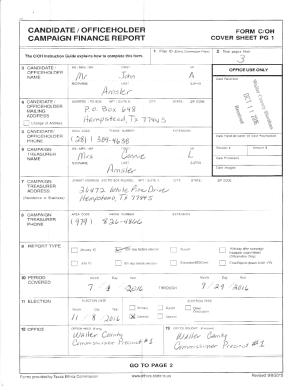 CANDIDATE / OFFICEHOLDER
CAMPAIGN FINANCE REPORT
FORM C/OH
COVER SHEET PG 1
The C/OH Instruction Guide explains how to complete this form.
1 Filer ID (Ethics Commission Filers)
2 Total pages filed:
3
3 CANDIDATE / OFFICEHOLDER NAME
MS / MRS / MR FIRST MI
Mr John A
NICKNAME LAST SUFFIX
Amsler
OFFICE USE ONLY
Date Received
4 CANDIDATE / OFFICEHOLDER MAILING ADDRESS
Change of Address
ADDRESS / PO BOX; APT / SUITE #; CITY; STATE; ZIP CODE
P.O. Box 648
Hempstead, Tx 77445
5 CANDIDATE / OFFICEHOLDER PHONE
AREA CODE PHONE NUMBER EXTENSION
(281) 389-4638
Date Hand-delivered or Date Postmarked
6 CAMPAIGN TREASURER NAME
MS / MRS / MR FIRST MI
Mrs Connie L
NICKNAME LAST SUFFIX
Amsler
Receipt # Amount $
Date Processed
Date Imaged
7 CAMPAIGN TREASURER ADDRESS
(Residence or Business)
STREET ADDRESS (NO PO BOX PLEASE); APT / SUITE #; CITY; STATE; ZIP CODE
36472 White Pine Drive
Hempstead, Tx 77445
8 CAMPAIGN TREASURER PHONE
AREA CODE PHONE NUMBER EXTENSION
(979) 826-4866
9 REPORT TYPE
January 15
30th day before election
Runoff
15th day after campaign treasurer appointment (Officeholder Only)
July 15
8th day before election
Exceeded $500 limit
Final Report (Attach C/OH - FR)
10 PERIOD COVERED
Month Day Year
THROUGH
Month Day Year
9 / 29 / 2016
11 ELECTION
ELECTION DATE
Month Day Year
11 / 8 / 2016
ELECTION TYPE
Primary
Runoff
Other Description
General
Special
12 OFFICE
OFFICE HELD (if any)
Waller County
Commissioner Precinct #1
13 OFFICE SOUGHT (if known)
Waller County
Commissioner Precinct #1
GO TO PAGE 2
Forms provided by Texas Ethics Commission
www.ethics.state.tx.us